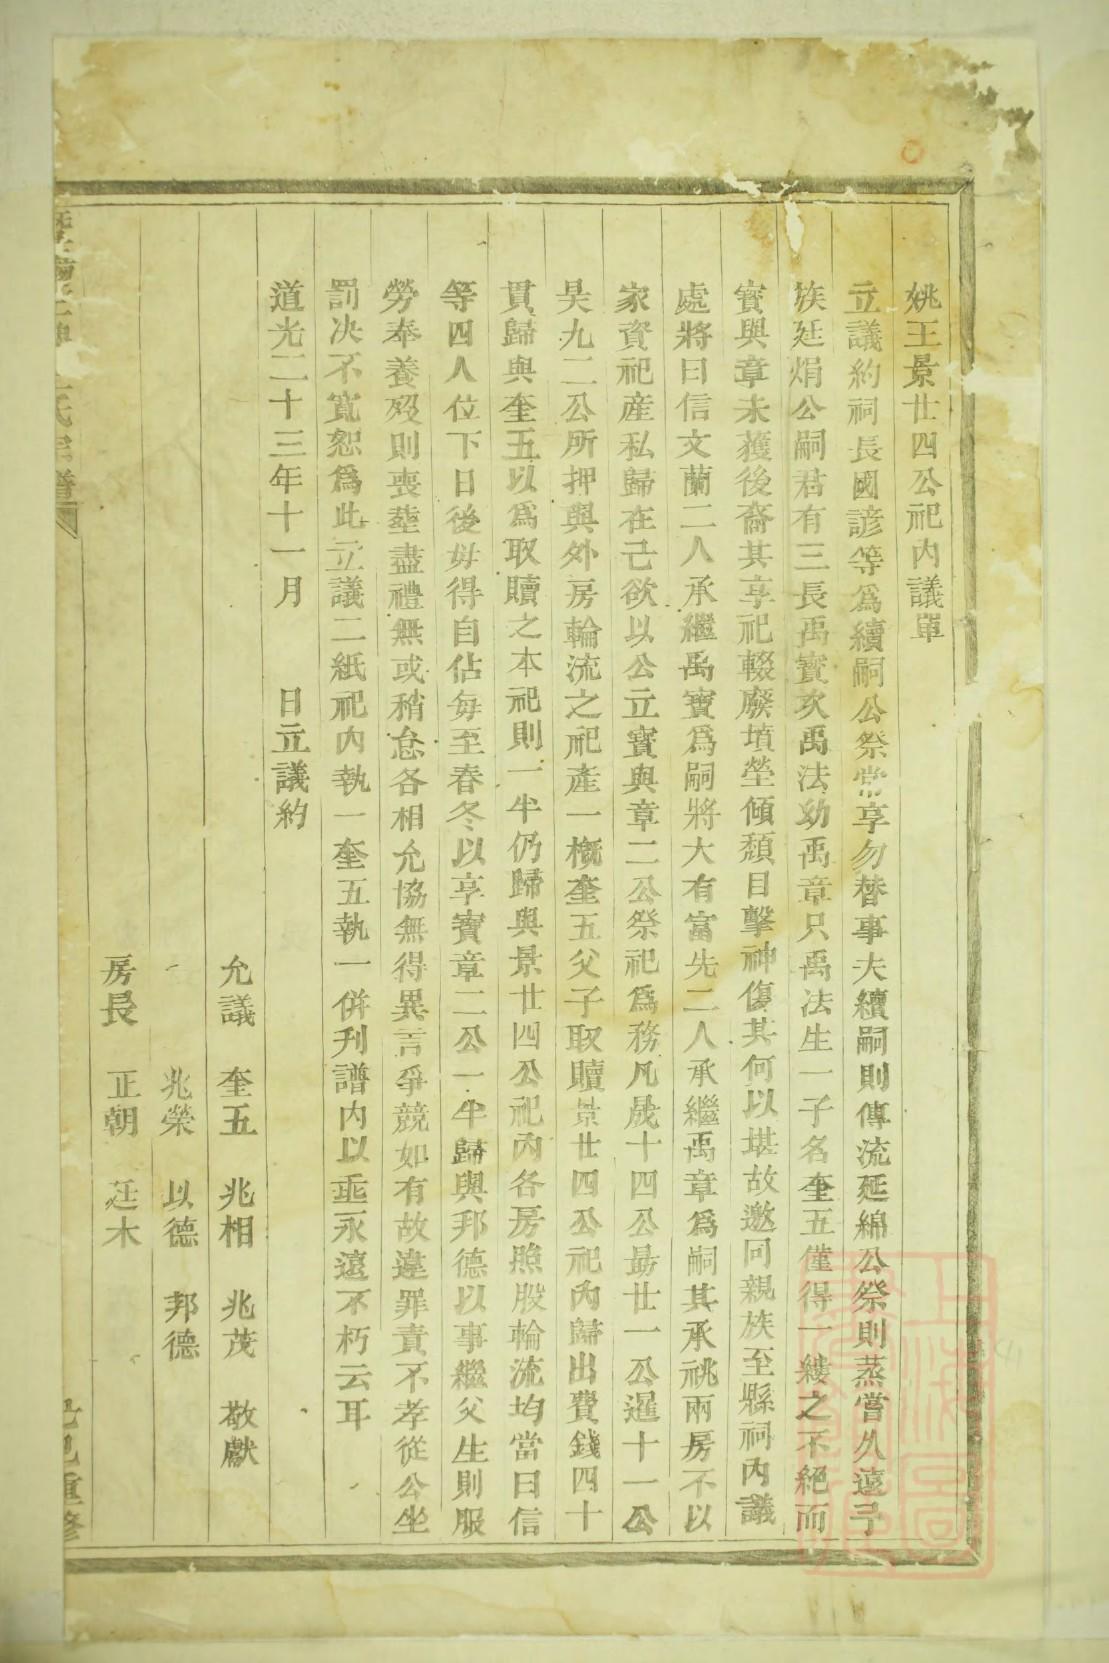 姚王景廿四公祀內議單
立議約祠長國諺等爲續嗣公祭常享勿替事夫續嗣則傳流延綿公祭則蒸嘗久遠予
族廷焆公嗣君有三長禹寳次禹法幼禹章只禹法生一子名奎五僅得一縷之不絕而
寳與章未獲後裔其享祀輟廢墳塋傾頽目擊神傷其何以堪故邀同親族至縣祠內議
處將日信文蘭二人承繼禹寳爲嗣將大有富先二人承繼禹章爲嗣其承祧兩房不以
家資祀產私歸在己欲以公立寳與章二公祭祀爲務凡晟十四公勗廿一公暹十一公
昊九二公所押與外房輪流之祀產一槪奎五父子取贖景廿四公祀內歸出費錢四十
貫歸與奎五以爲取贖之本祀則一半仍歸與景廿四公祀內各房照股輪流均當日信
等四人位下日後毋得自佔每至春冬以享寳章二公一半歸與邦德以事繼父生則服
勞奉養歿則喪塟盡禮無或稍怠各相允協無得異言爭競如有故違罪責不孝從公坐
罰決不寬恕爲此立議二紙祀內執一奎五執一併刋譜內以垂永遠不朽云耳
道光二十三年十一月　日立議約
允議　奎五　兆相　兆茂　敬獻
兆榮　以德　邦德
房長　正朝　廷木
氏宗譜
重修
上海圖